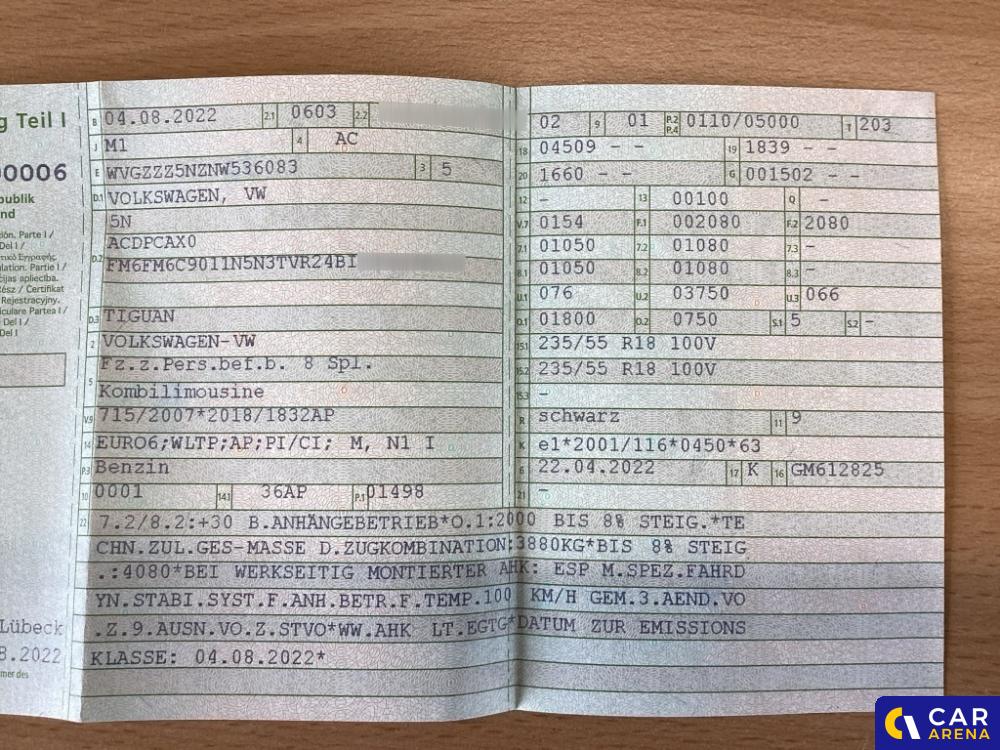 g Teil I
B 04.08.2022 2.1 0603 2.2
J M1 4 AC
0006
E WVGZZZ5NZNW536083 3 5
D.1 VOLKSWAGEN, VW
publik
nd
5N
ión. Parte I /
Del I /
D.2 ACDPCAX0
FM6FM6C9011N5N3TVR24BI
ulation. Partie I /
cijas apliecība.
Rész / Certifikat
Rejestracyjny.
iculare Partea I /
Del I /
Del I
D.3 TIGUAN
2 VOLKSWAGEN-VW
5 Fz.z.Pers.bef.b. 8 Spl.
Kombilimousine
V.9 715/2007*2018/1832AP
14 EURO6;WLTP;AP;PI/CI; M, N1 I
P.3 Benzin
10 0001 14.1 36AP P.1 01498
02 9 01 P.2 P.4 0110/05000 T 203
18 04509 - - 19 1839 - -
20 1660 - - G 001502 - -
12 - 13 00100 Q -
V.7 0154 F.1 002080 F.2 2080
7.1 01050 7.2 01080 7.3 -
8.1 01050 8.2 01080 8.3 -
U.1 076 U.2 03750 U.3 066
O.1 01800 O.2 0750 S.1 5 S.2 -
15.1 235/55 R18 100V
15.2 235/55 R18 100V
15.3 -
R schwarz 11 9
K e1*2001/116*0450*63
6 22.04.2022 17 K 16 GM612825
21 -
22 7.2/8.2:+30 B.ANHÄNGEBETRIEB*O.1:2000 BIS 8% STEIG.*TE
CHN.ZUL.GES-MASSE D.ZUGKOMBINATION:3880KG*BIS 8% STEIG
.:4080*BEI WERKSEITIG MONTIERTER AHK: ESP M.SPEZ.FAHRD
YN.STABI.SYST.F.ANH.BETR.F.TEMP.100 KM/H GEM.3.AEND.VO
.Z.9.AUSN.VO.Z.STVO*WW.AHK LT.EGTG*DATUM ZUR EMISSIONS
KLASSE: 04.08.2022*
Lübeck
8.2022
mer des
CAR
ARENA